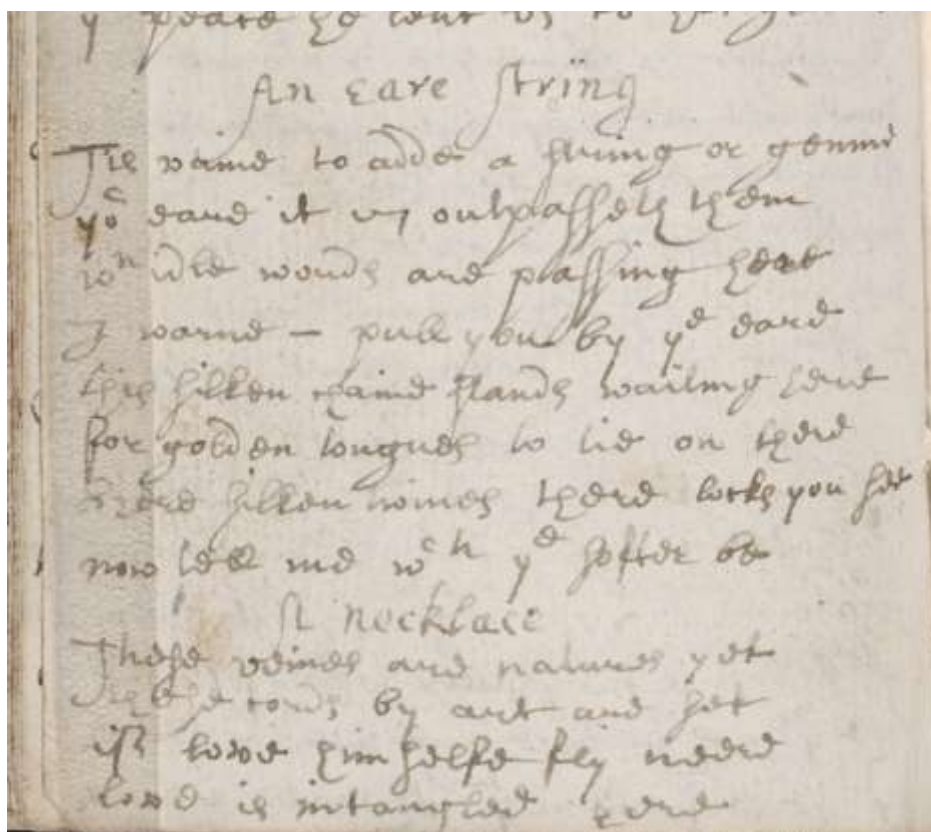 An eare string
Tis vaine to adde a string or gemme
yor eare it outpasseth them
wn idle words are passing here
I warne – pull you by ye eare
this silken chaine stands waiting here
for golden tongues to tie on there
Here silken twines there locks you see
now tell me wch ye softer be
A necklace
These veines are natures net
These cords by art are set
if love himselfe fly neere
love is intangled here